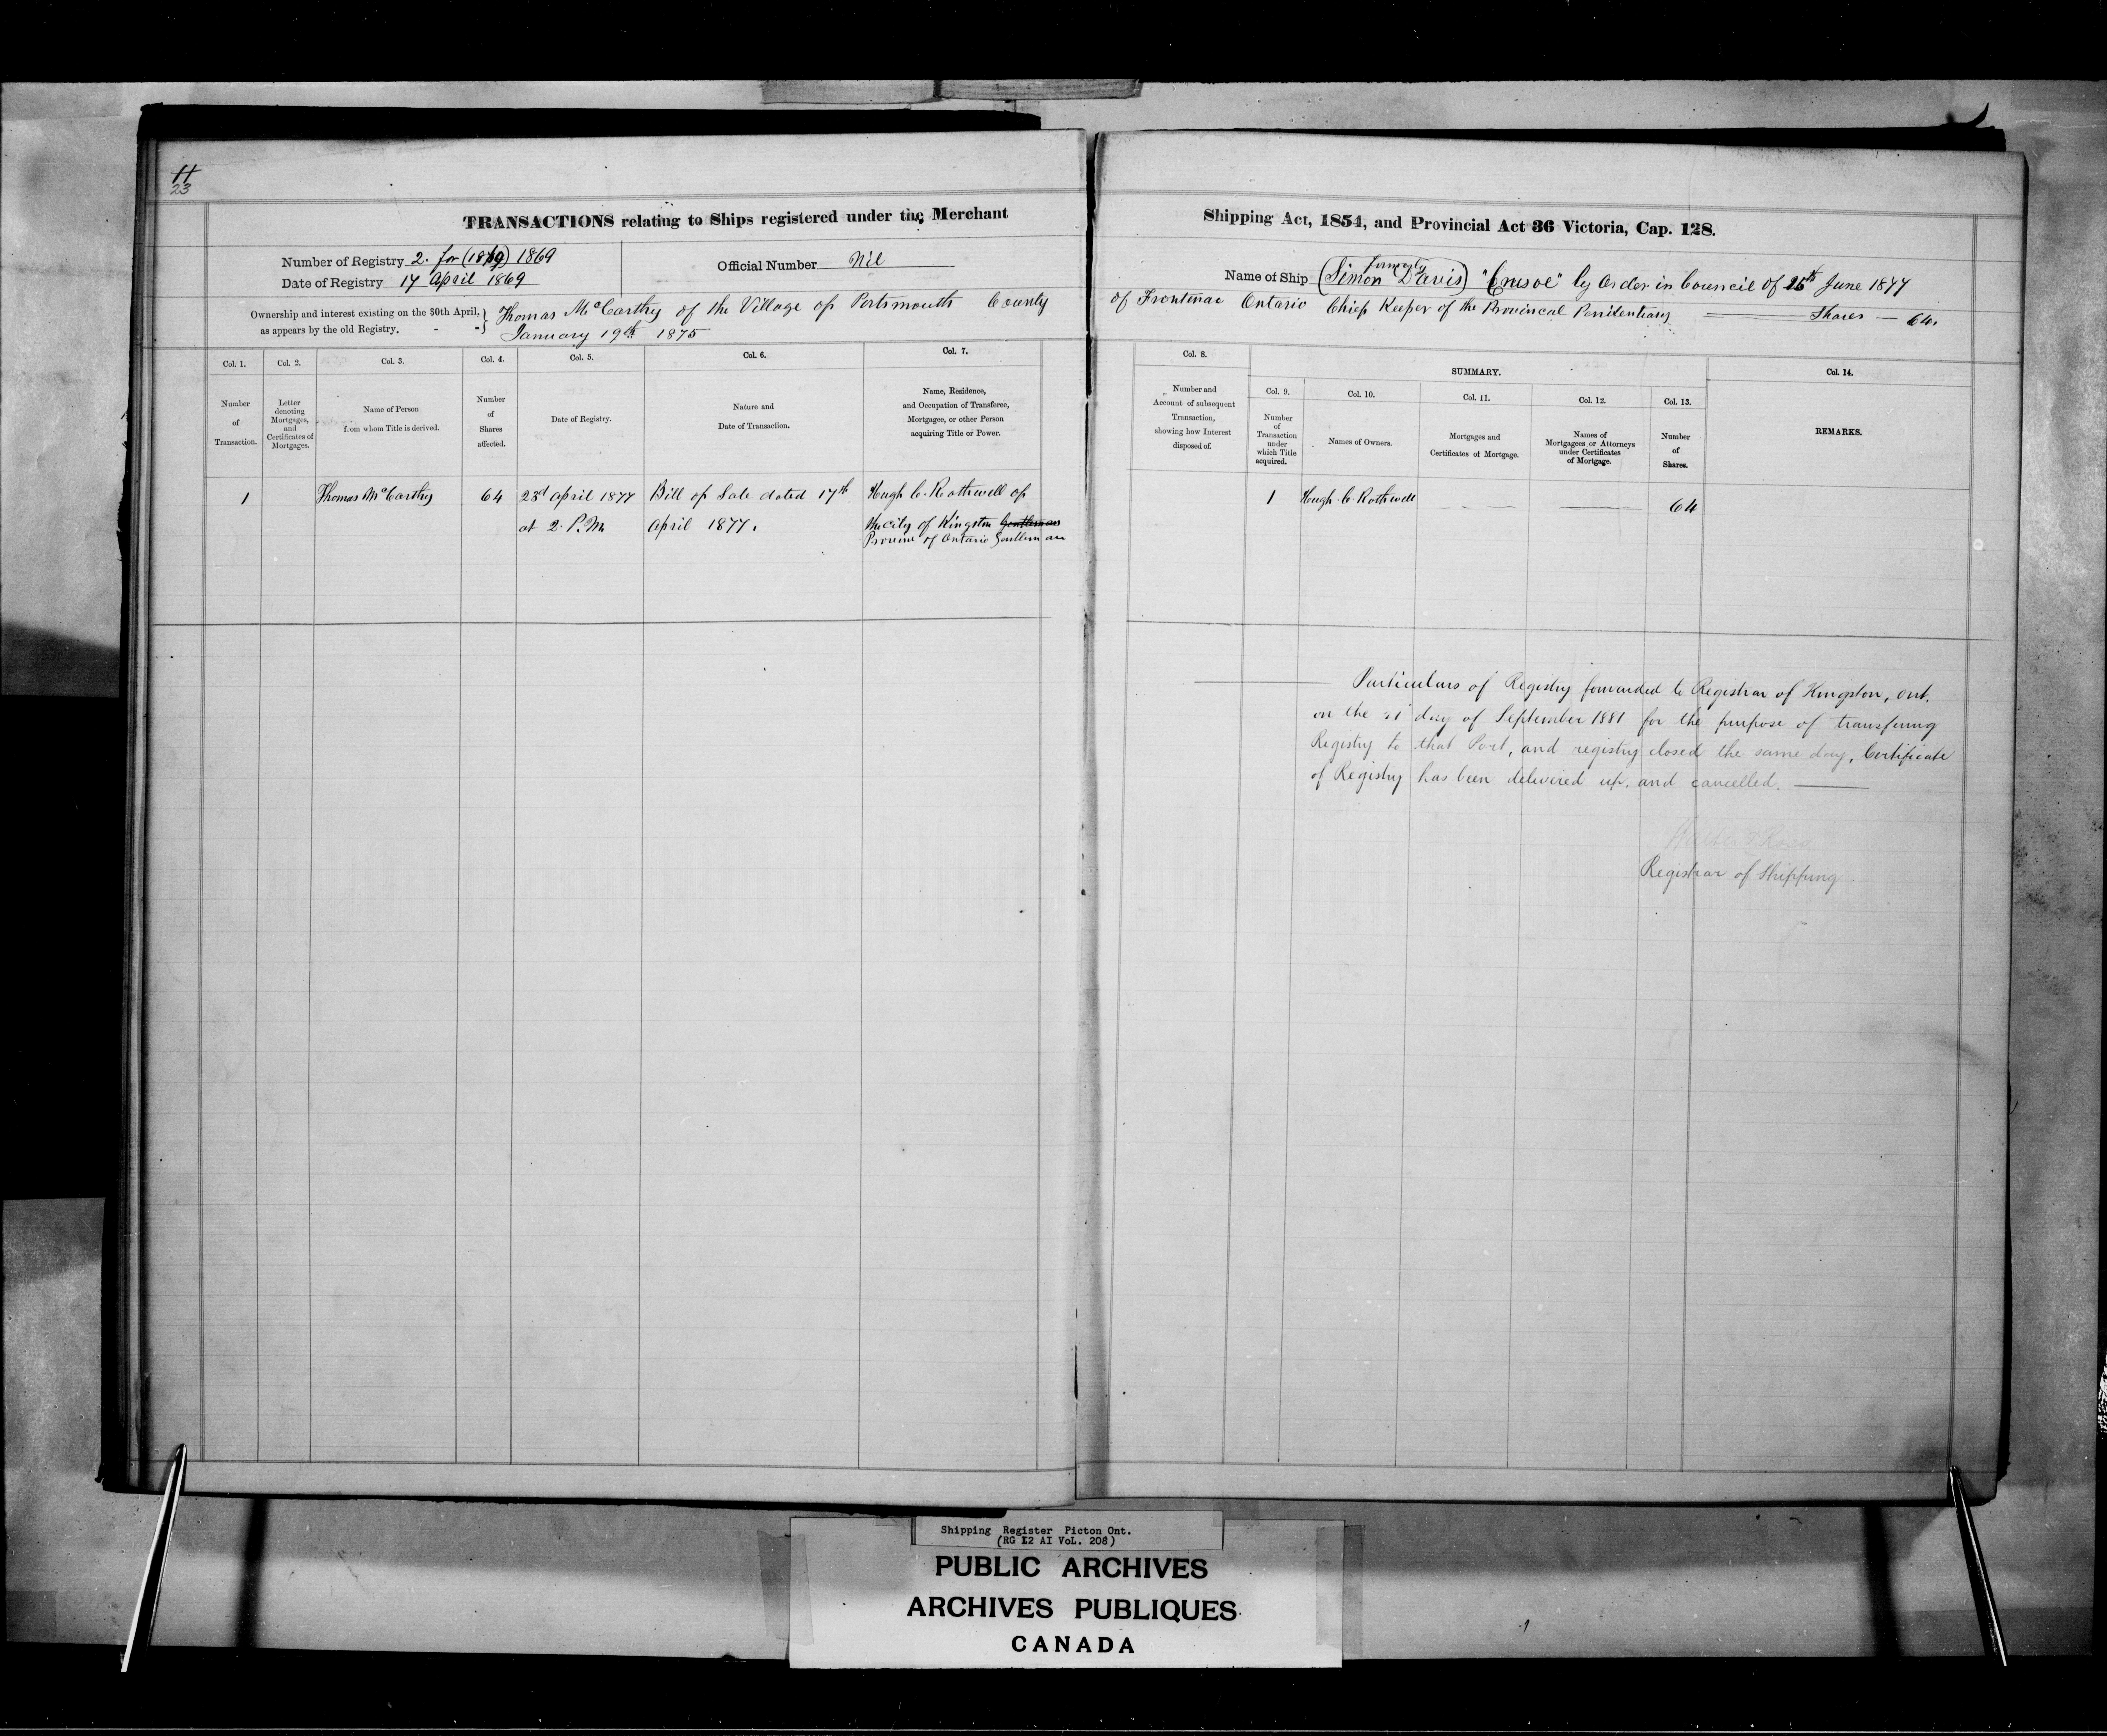 11
23
TRANSACTIONS relating to Ships registered under the Merchant
Number of Registry 2. for (1869) 1869
Official Number Nil
Date of Registry 17 April 1869
Ownership and interest existing on the 30th April, as appears by the old Registry. - - } Thomas McCarthy of the Village of Portsmouth County
January 19th 1875
Col. 1.
Number
of
Transaction.
Col. 2.
Letter
denoting
Mortgages,
and
Certificates of
Mortgages.
Col. 3.
Name of Person
from whom Title is derived.
Col. 4.
Number
of
Shares
affected.
Col. 5.
Date of Registry.
Col. 6.
Nature and
Date of Transaction.
Col. 7.
Name, Residence,
and Occupation of Transferee,
Mortgagee, or other Person
acquiring Title or Power.
1 Thomas McCarthy 64 23rd April 1877 Bill of Sale dated 17th Hugh C. Rothwell of
at 2. P.M. April 1877. the city of Kingston Gentleman
Province of Ontario Gentleman
Shipping Act, 1854, and Provincial Act 36 Victoria, Cap. 128.
Name of Ship (formerly Simon Davis) "Crusoe" by Order in Council of 25th June 1877
of Frontinac Ontario Chief Keeper of the Provincal Penitentiary Shares — 64.
Col. 8.
Number and
Account of subsequent
Transaction,
showing how Interest
disposed of.
SUMMARY.
Col. 9.
Number
of
Transaction
under
which Title
acquired.
Col. 10.
Names of Owners.
Col. 11.
Mortgages and
Certificates of Mortgage.
Col. 12.
Names of
Mortgagees or Attorneys
under Certificates
of Mortgage.
Col. 13.
Number
of
Shares.
Col. 14.
REMARKS.
1 Hugh C. Rothwell 64
Particulars of Registry forwarded to Registrar of Kingston, Ont.
on the 21 day of September 1881 for the purpose of transfering
Registry to that Port, and registry closed the same day, Certificate
of Registry has been delivered up, and cancelled.
Walter Ross
Registrar of Shipping
Shipping Register Picton Ont.
(RG 12 A1 VoL. 208)
PUBLIC ARCHIVES
ARCHIVES PUBLIQUES
CANADA